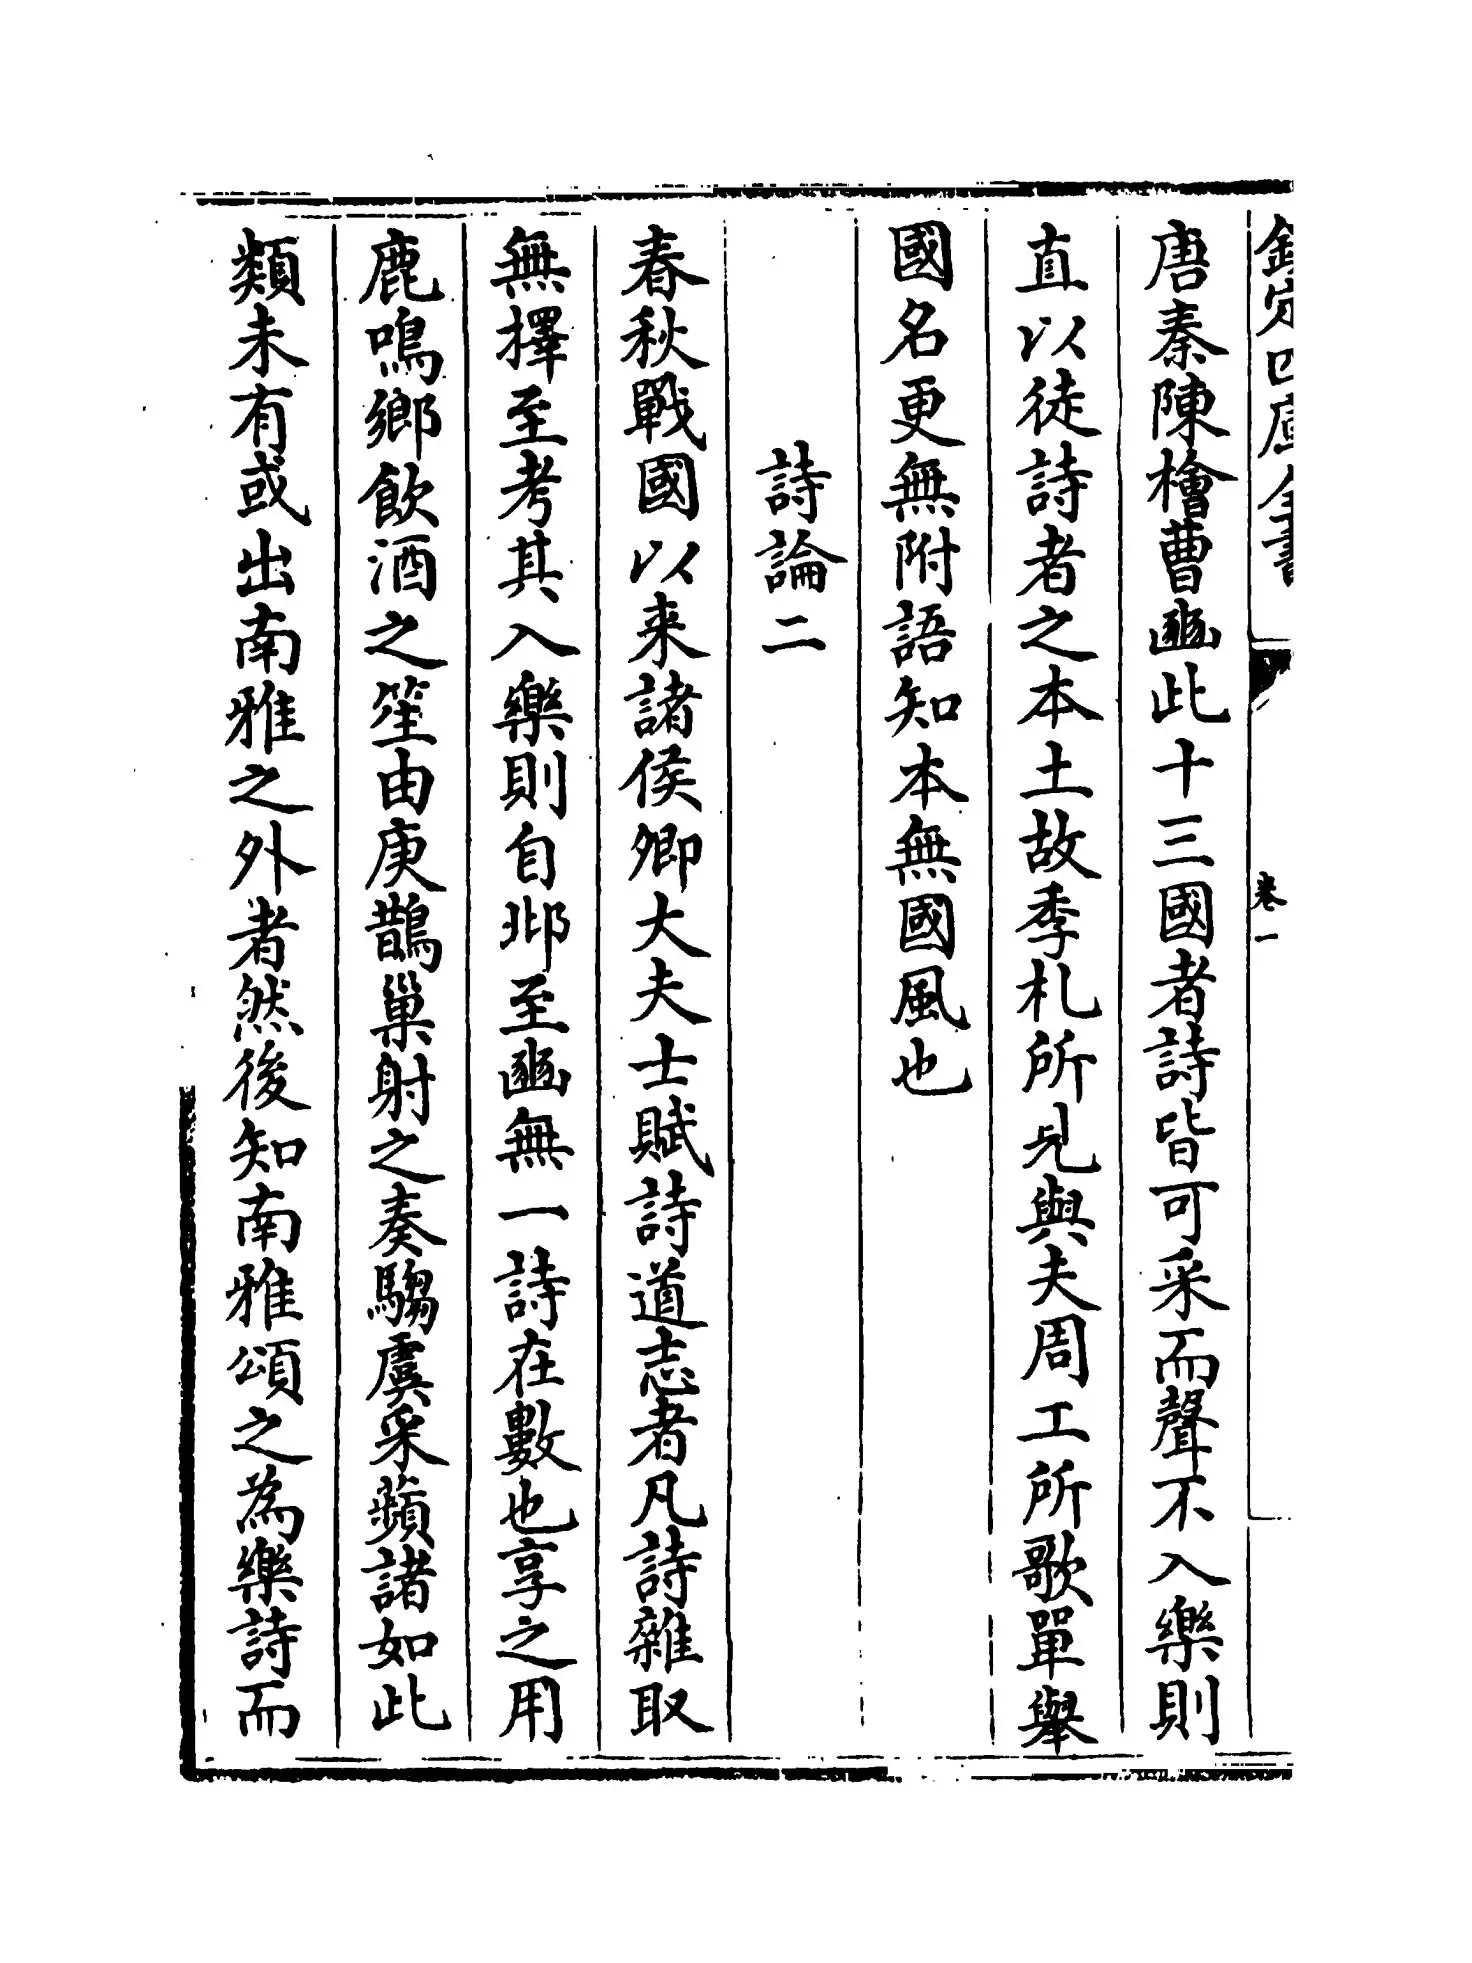 欽定四庫全書
卷一
唐秦陳檜曹豳此十三國者詩皆可采而聲不入樂則
直以徒詩著之本土故季札所見與夫周工所歌單舉
國名更無附語知本無國風也
詩論二
春秋戰國以来諸侯卿大夫士賦詩道志者凡詩雜取
無擇至考其入樂則自邶至豳無一詩在數也享之用
鹿鳴鄉飲酒之笙由庚鵲巢射之奏騶虞采蘋諸如此
類未有或出南雅之外者然後知南雅頌之為樂詩而